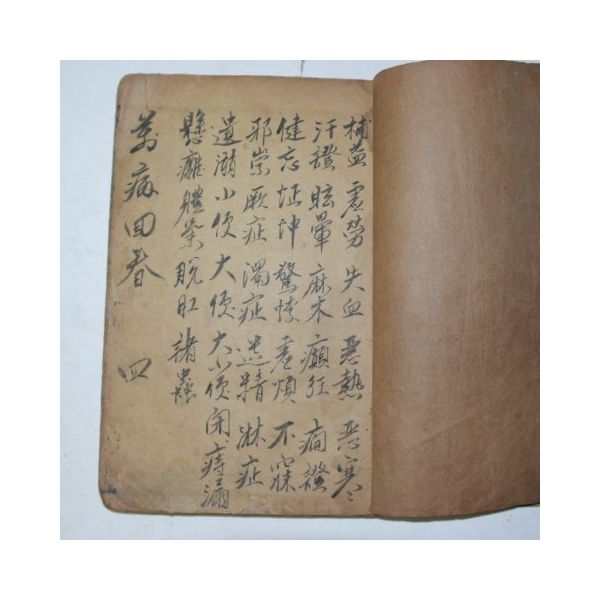 補益 虛勞 失血 惡熱 惡寒
汗證 眩暈 麻木 癲狂 癎證
健忘 怔忡 驚悸 虛煩 不寐
邪祟 厥症 濁症 遺精 淋症
遺溺 小便 大便 大小便閉 痔漏
懸癰 體臭 脫肛 諸蟲
萬病回春 四